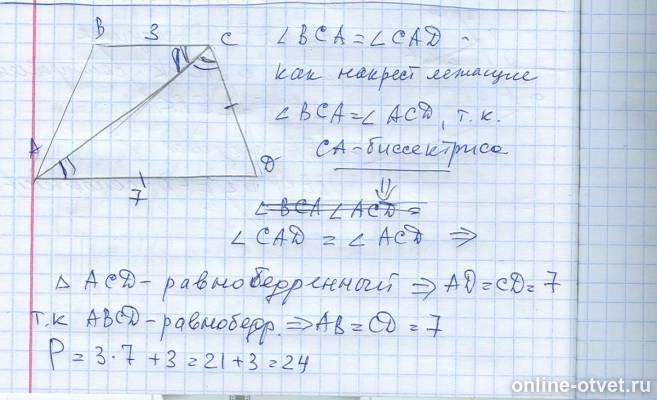 B 3 C
A
D
7
∠BCA = ∠CAD -
как накрест лежащие
∠BCA = ∠ACD, т.к.
CA - биссектриса
∠BCA ∠ACD =
∠CAD = ∠ACD ⇒
△ ACD - равнобедренный ⇒ AD = CD = 7
т.к ABCD - равнобедр. ⇒ AB = CD = 7
P = 3·7 + 3 = 21 + 3 = 24
online-otvet.ru